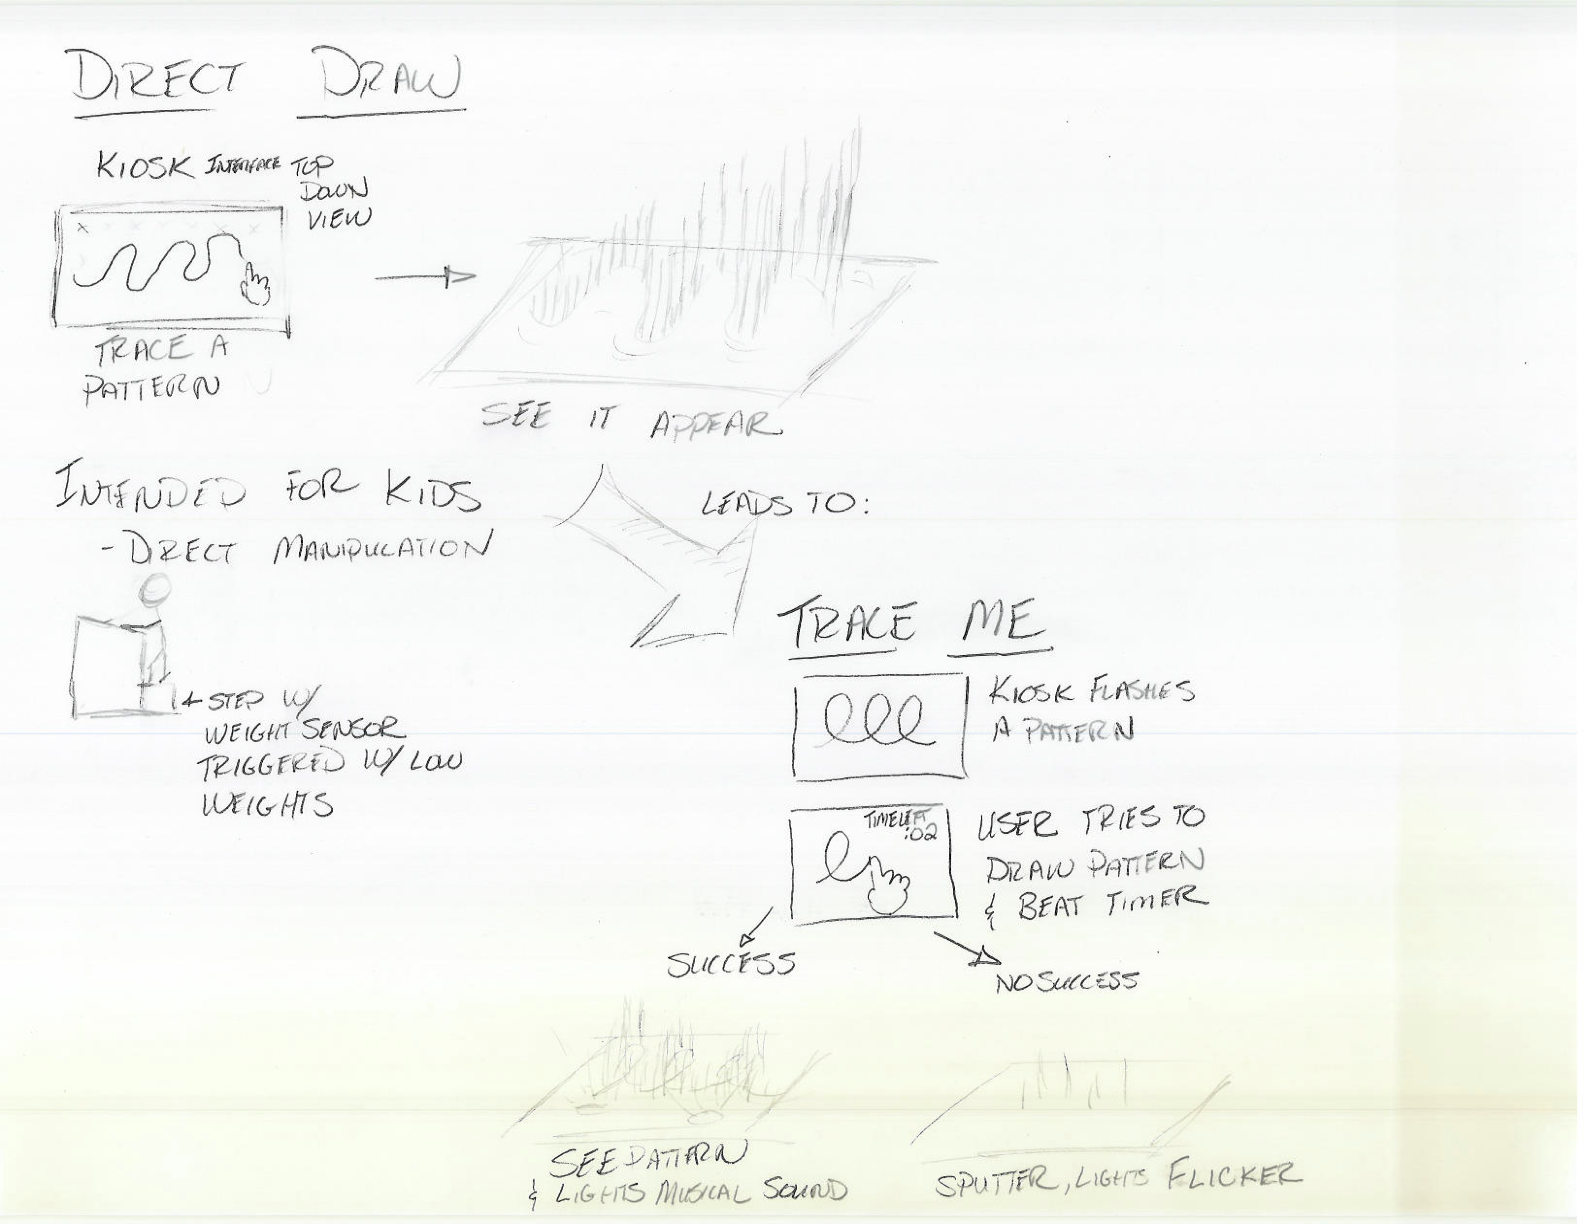 DIRECT DRAW
KIOSK INTERFACE TOP
DOWN
VIEW
TRACE A
PATTERN
SEE IT APPEAR
INTENDED FOR KIDS
- DIRECT MANIPULATION
STEP W/
WEIGHT SENSOR
TRIGGERED W/ LOW
WEIGHTS
LEADS TO:
TRACE ME
KIOSK FLASHES
A PATTERN
TIME LEFT
:02
USER TRIES TO
DRAW PATTERN
& BEAT TIMER
SUCCESS
NO SUCCESS
SEE PATTERN
& LIGHTS MUSICAL SOUND
SPUTTER, LIGHTS FLICKER